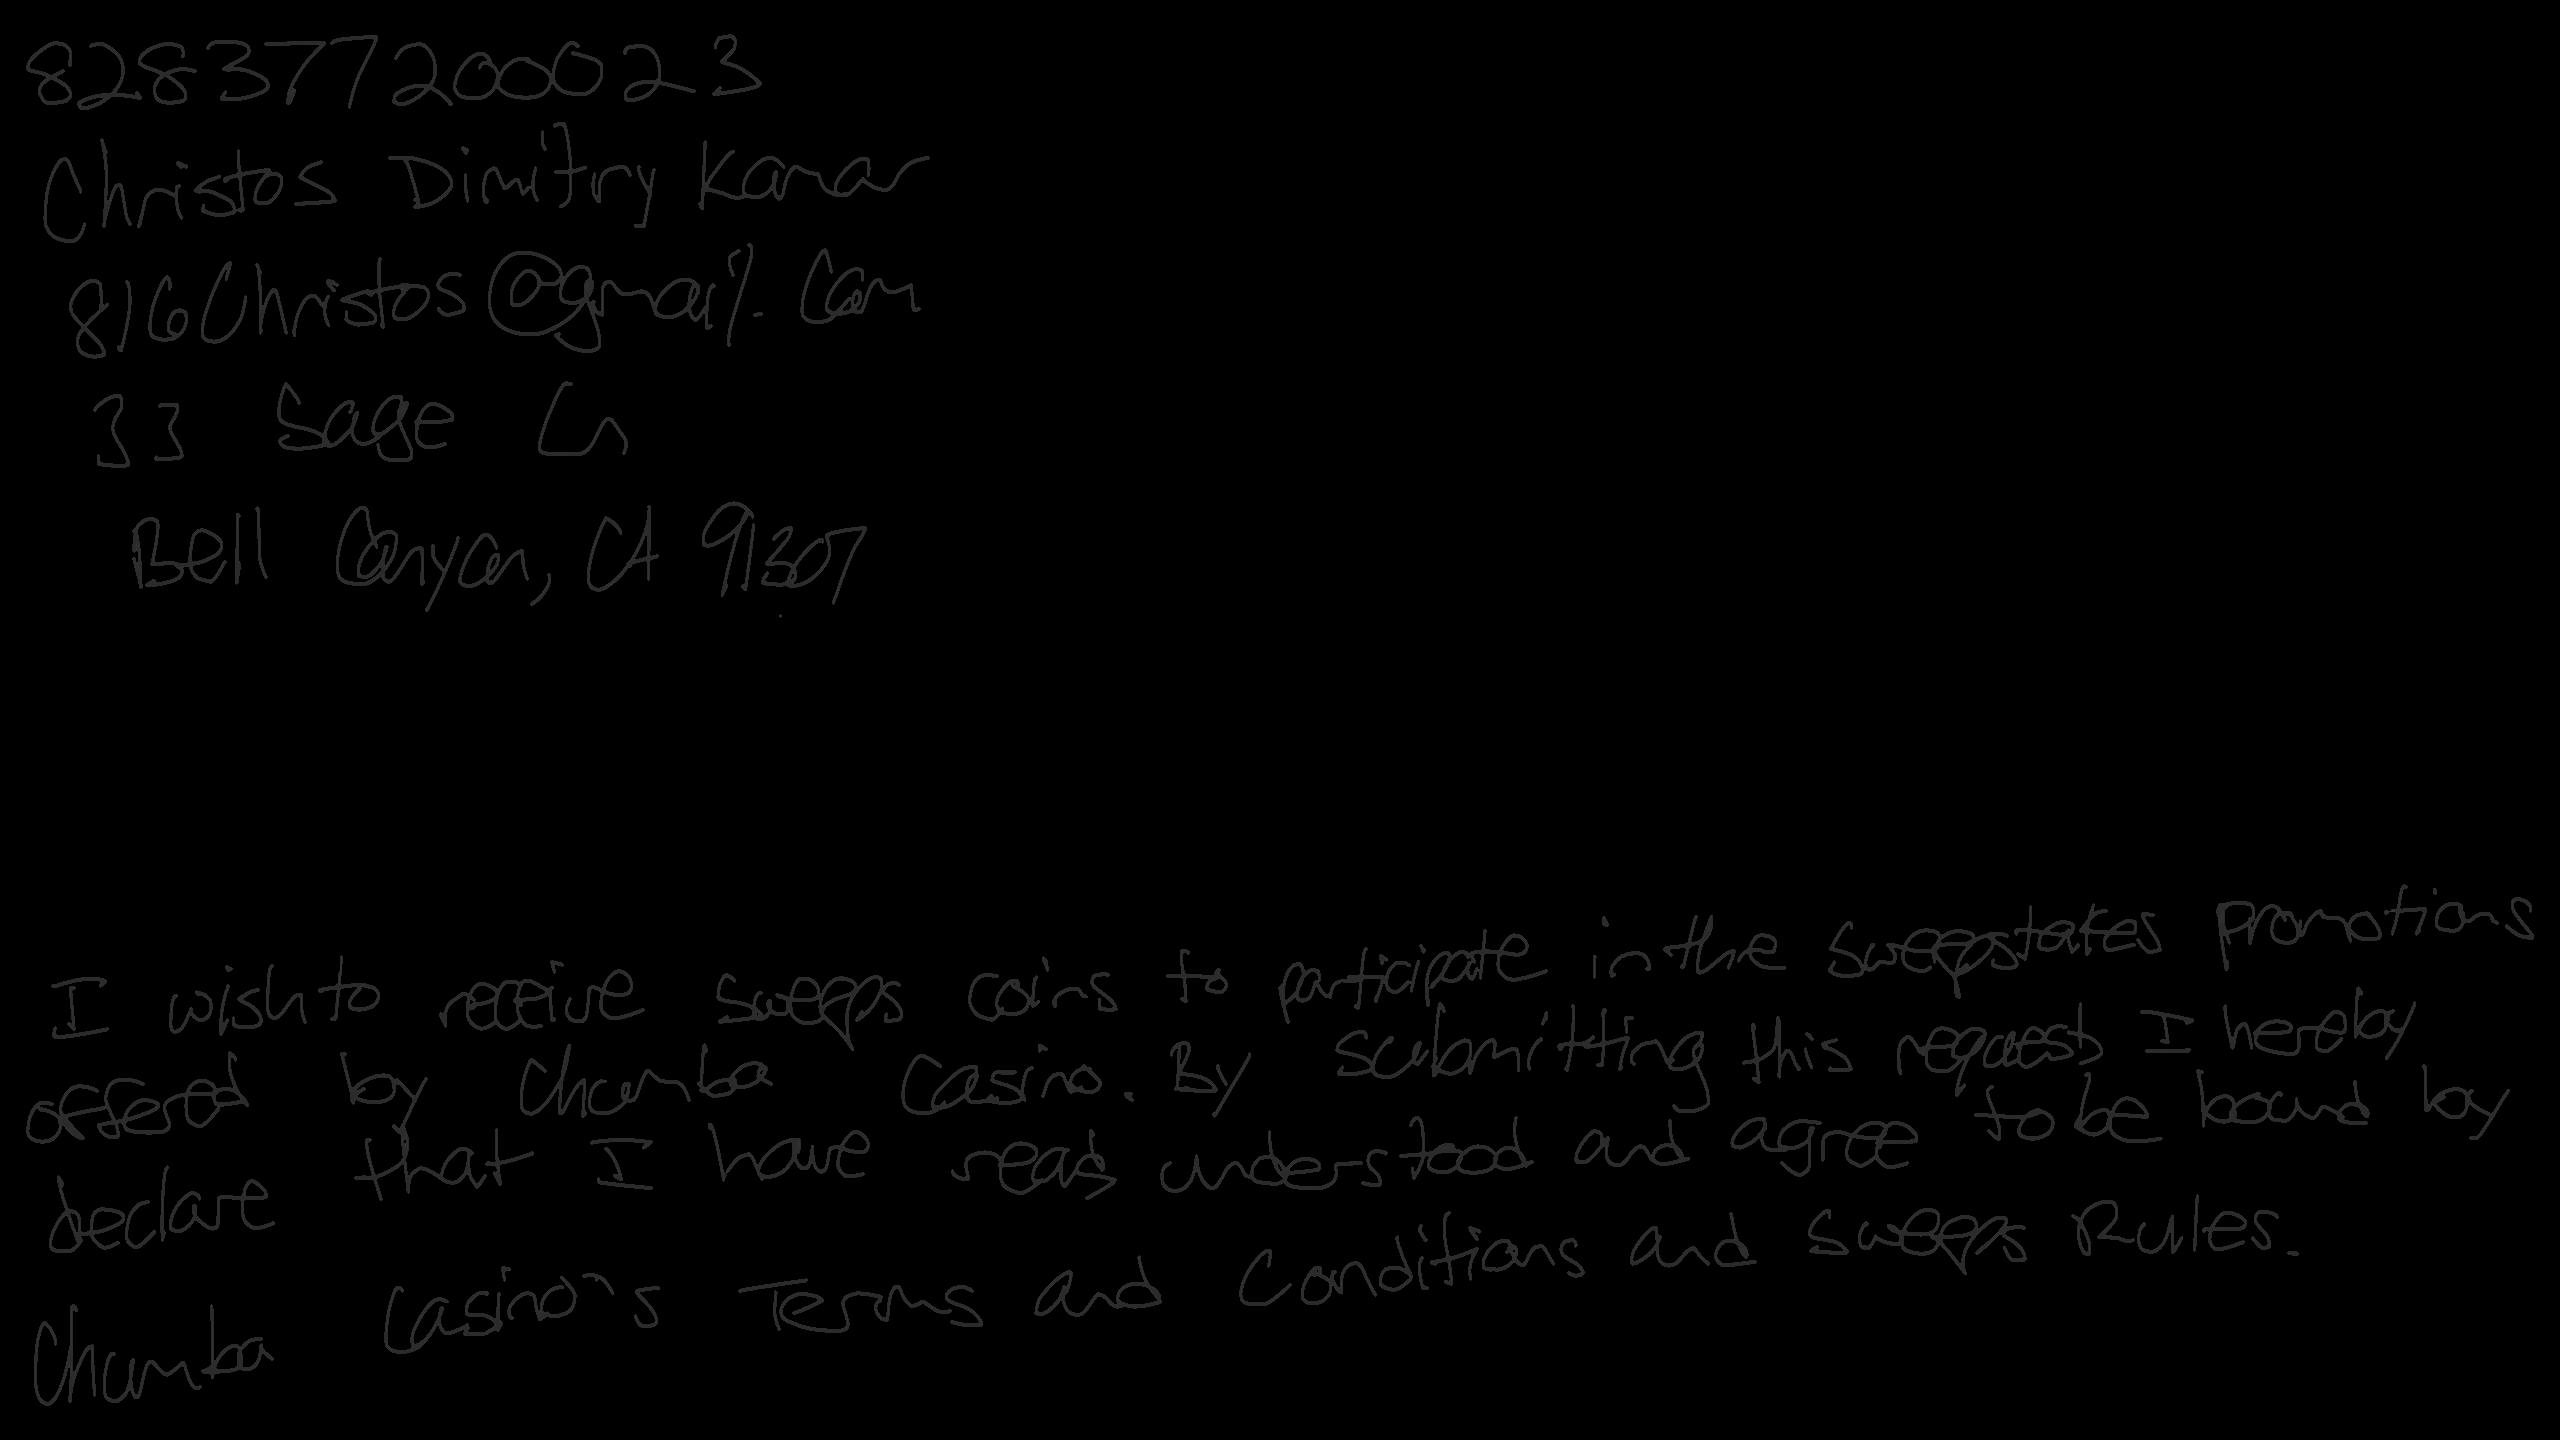 828377200023
Christos Dimitry Kamar
816Christos@gmail.com
33 Sage Ln
Bell Canyon, CA 91307
I wish to receive sweeps coins to participate in the sweepstakes promotions
offered by Chumba Casino. By submitting this request I hereby
declare that I have read, understood and agree to be bound by
Chumba Casino's Terms and Conditions and Sweeps Rules.